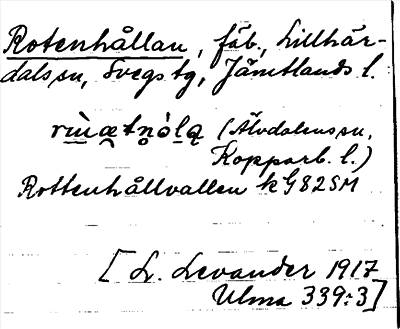 Rotenhållan, fäb., Lillhär-
dals sn, Svegs tg, Jämtlands l.
(Älvdalens sn,
Kopparb. l.)
Rottenhållvallen kG82SM
[L. Levander 1917
Ulma 339:3]